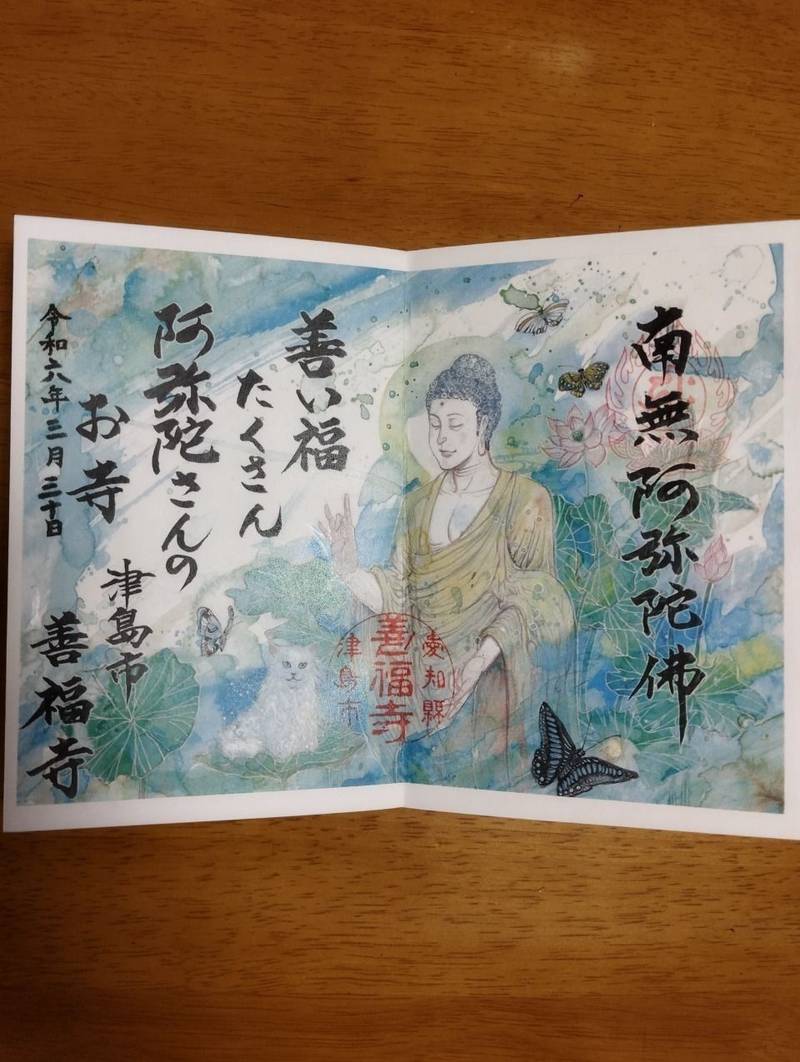 南無阿弥陀佛
善い福
たくさん
阿弥陀さんの
お寺
令和六年三月三十日
津島市
善福寺
愛知縣
善福寺
津島市